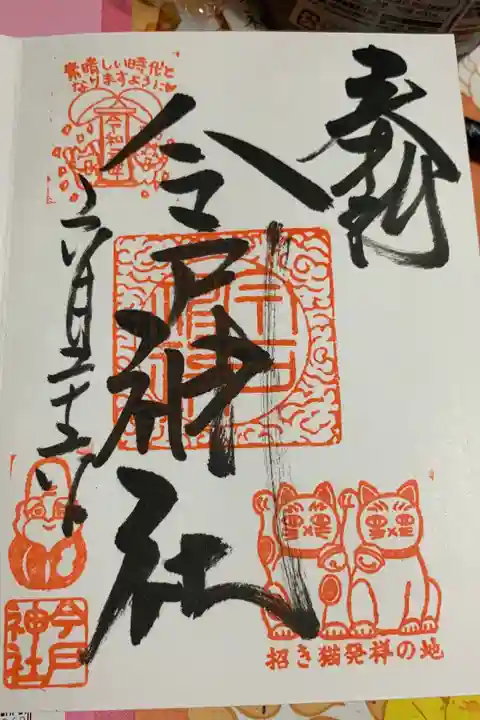 奉拝
今戸神社
素晴しい時代と
なりますように
令和元年
招き猫発祥の地
今戸
神社